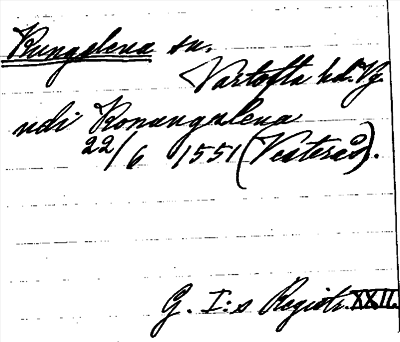 Kungalena sn.
Vartofta hd. Vg.
udi Konungalena
22/6 1551 (Vesterås).
G. I:s Registr. XXII.